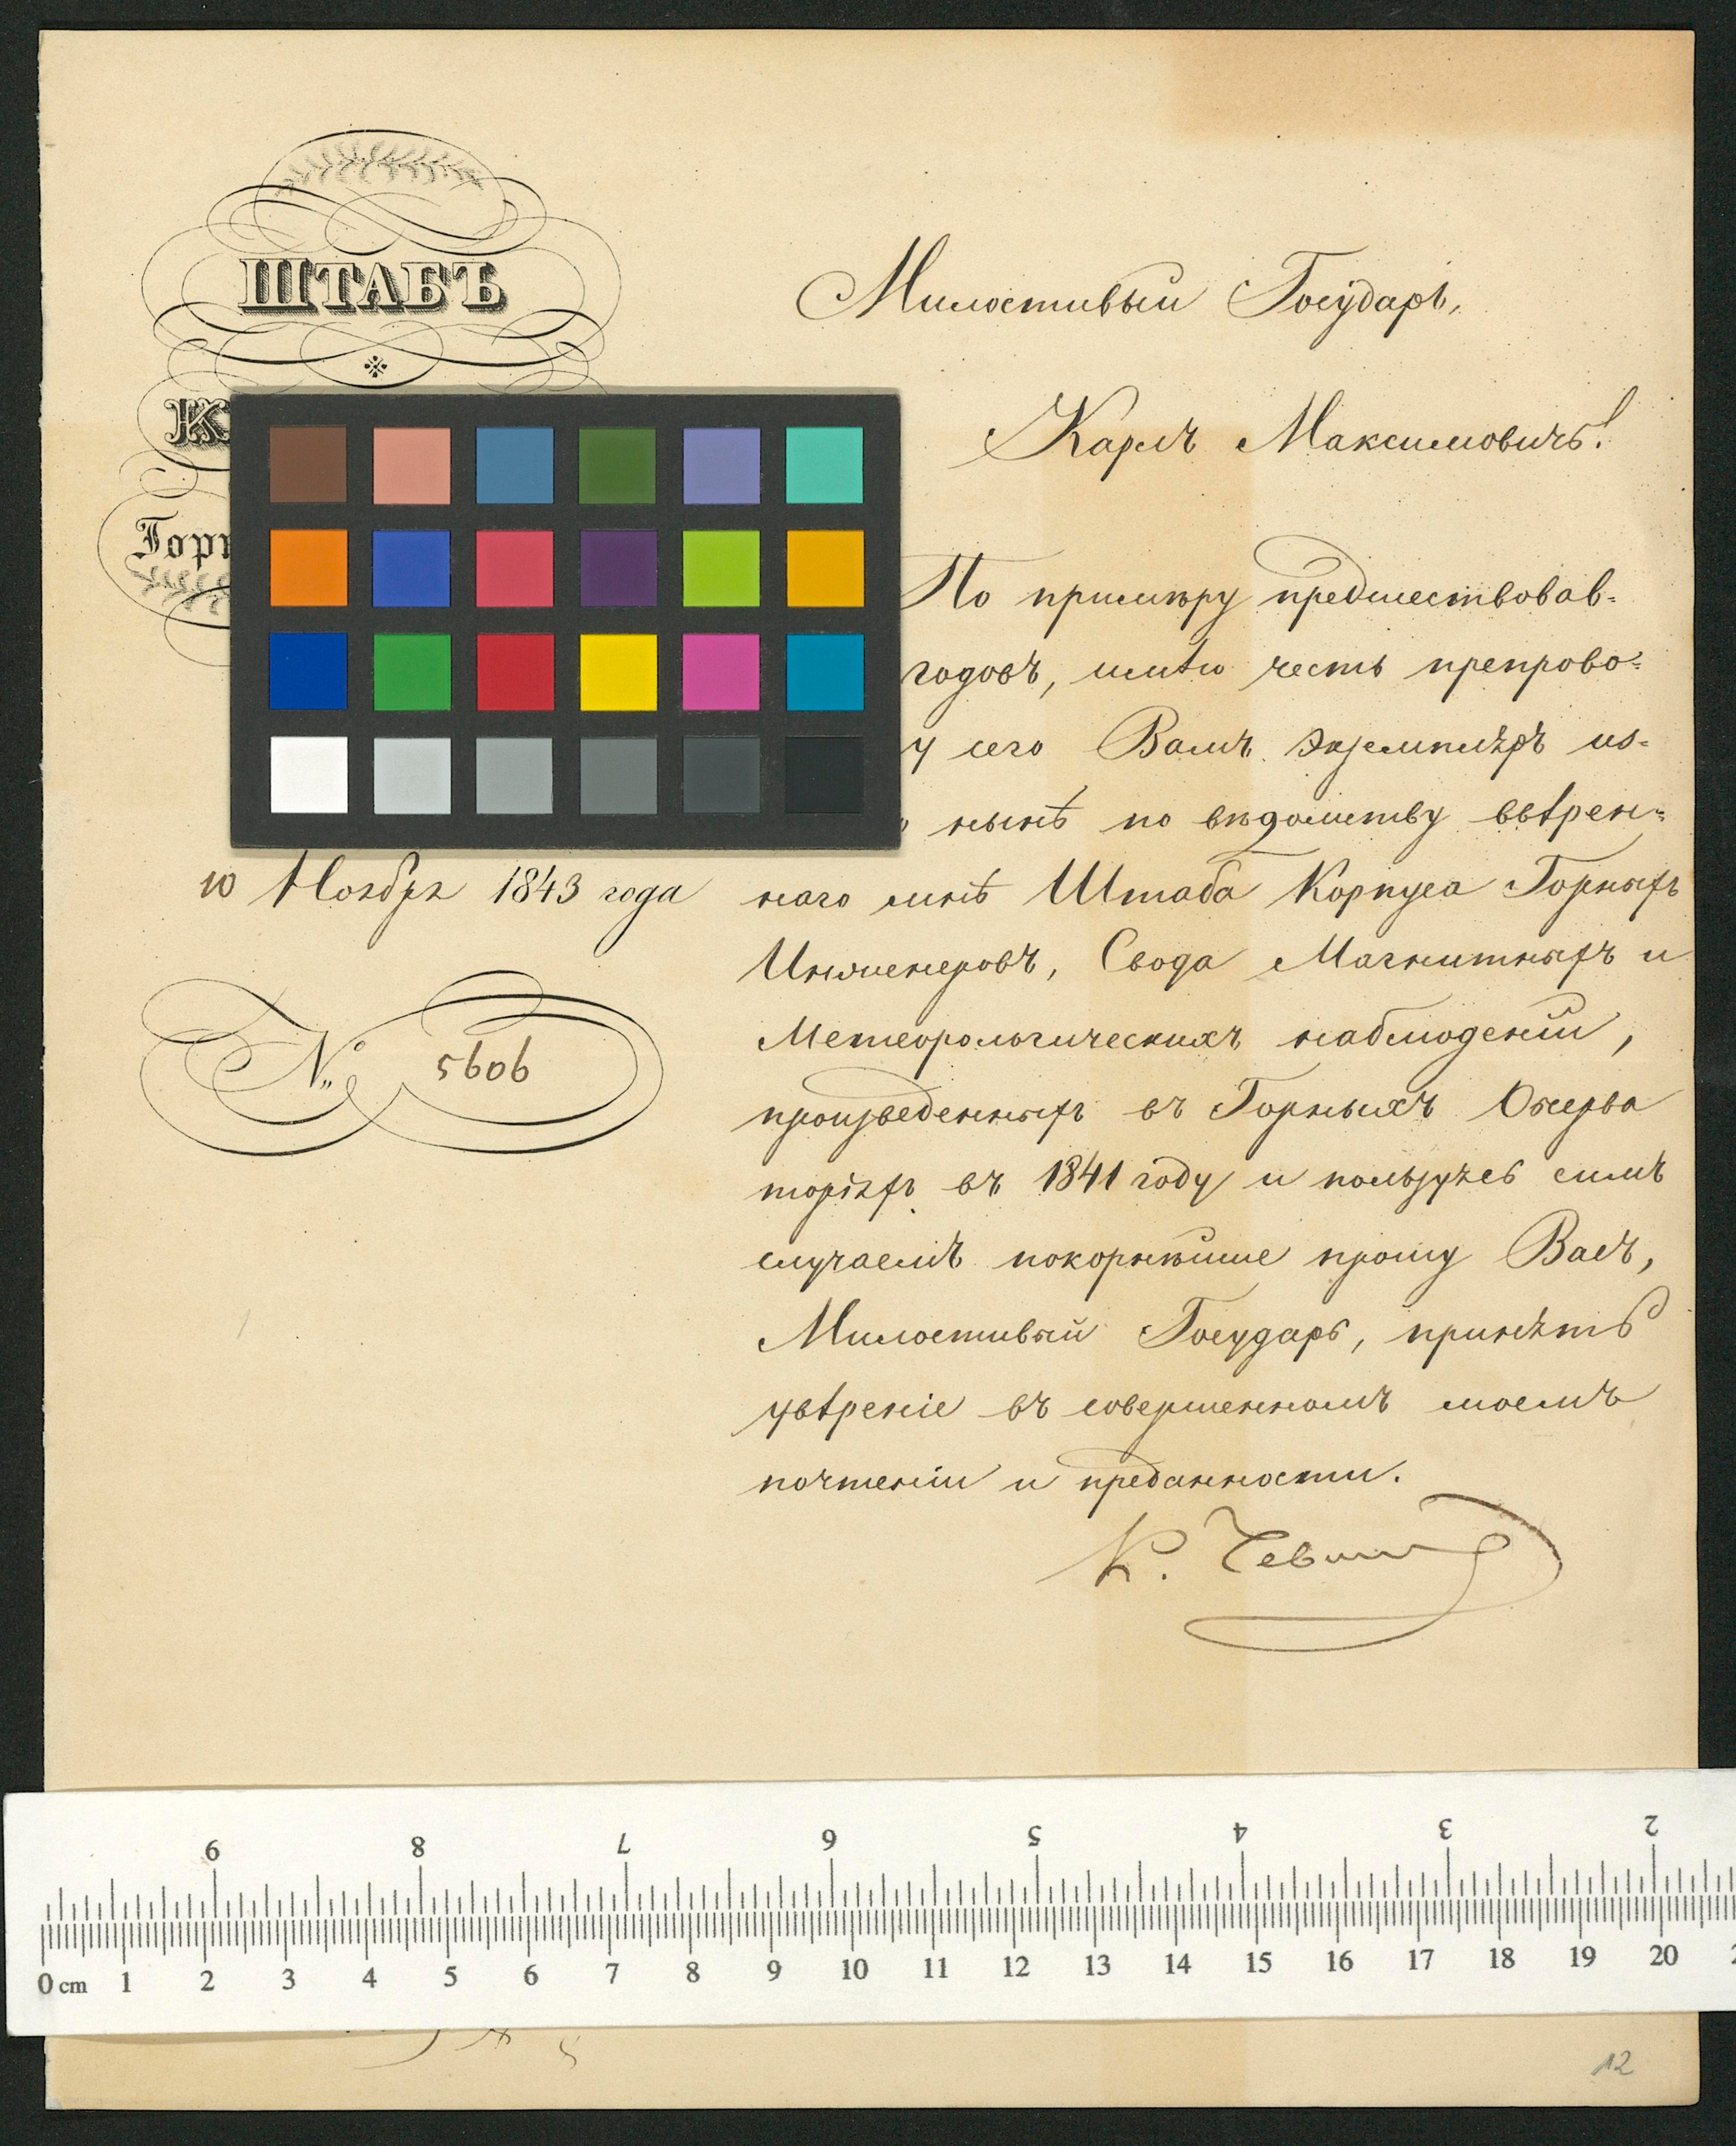 ШТАБЪ
10 Ноября 1843 года
№ 5606
Милостивый Государь,
Карлъ Максимовичъ!
По примѣру предшествовав-
годовъ, имѣю честь препрово-
у сего Вамъ экземпляръ из-
нынѣ по вѣдомству ввѣрен-
наго мнѣ Штаба Корпуса Горныхъ
Инженеровъ, Свода Магнитныхъ и
Метеорологическихъ наблюденій,
произведенныхъ въ Горныхъ Обсерва
торіяхъ въ 1841 году и пользуясь симъ
случаемъ покорнѣйше прошу Васъ,
Милостивый Государь, принять
увѣреніе въ совершенномъ моемъ
почтеніи и преданности.
К. Чевкин
9 8 7 6 5 4 3 2
0 cm 1 2 3 4 5 6 7 8 9 10 11 12 13 14 15 16 17 18 19 20
12